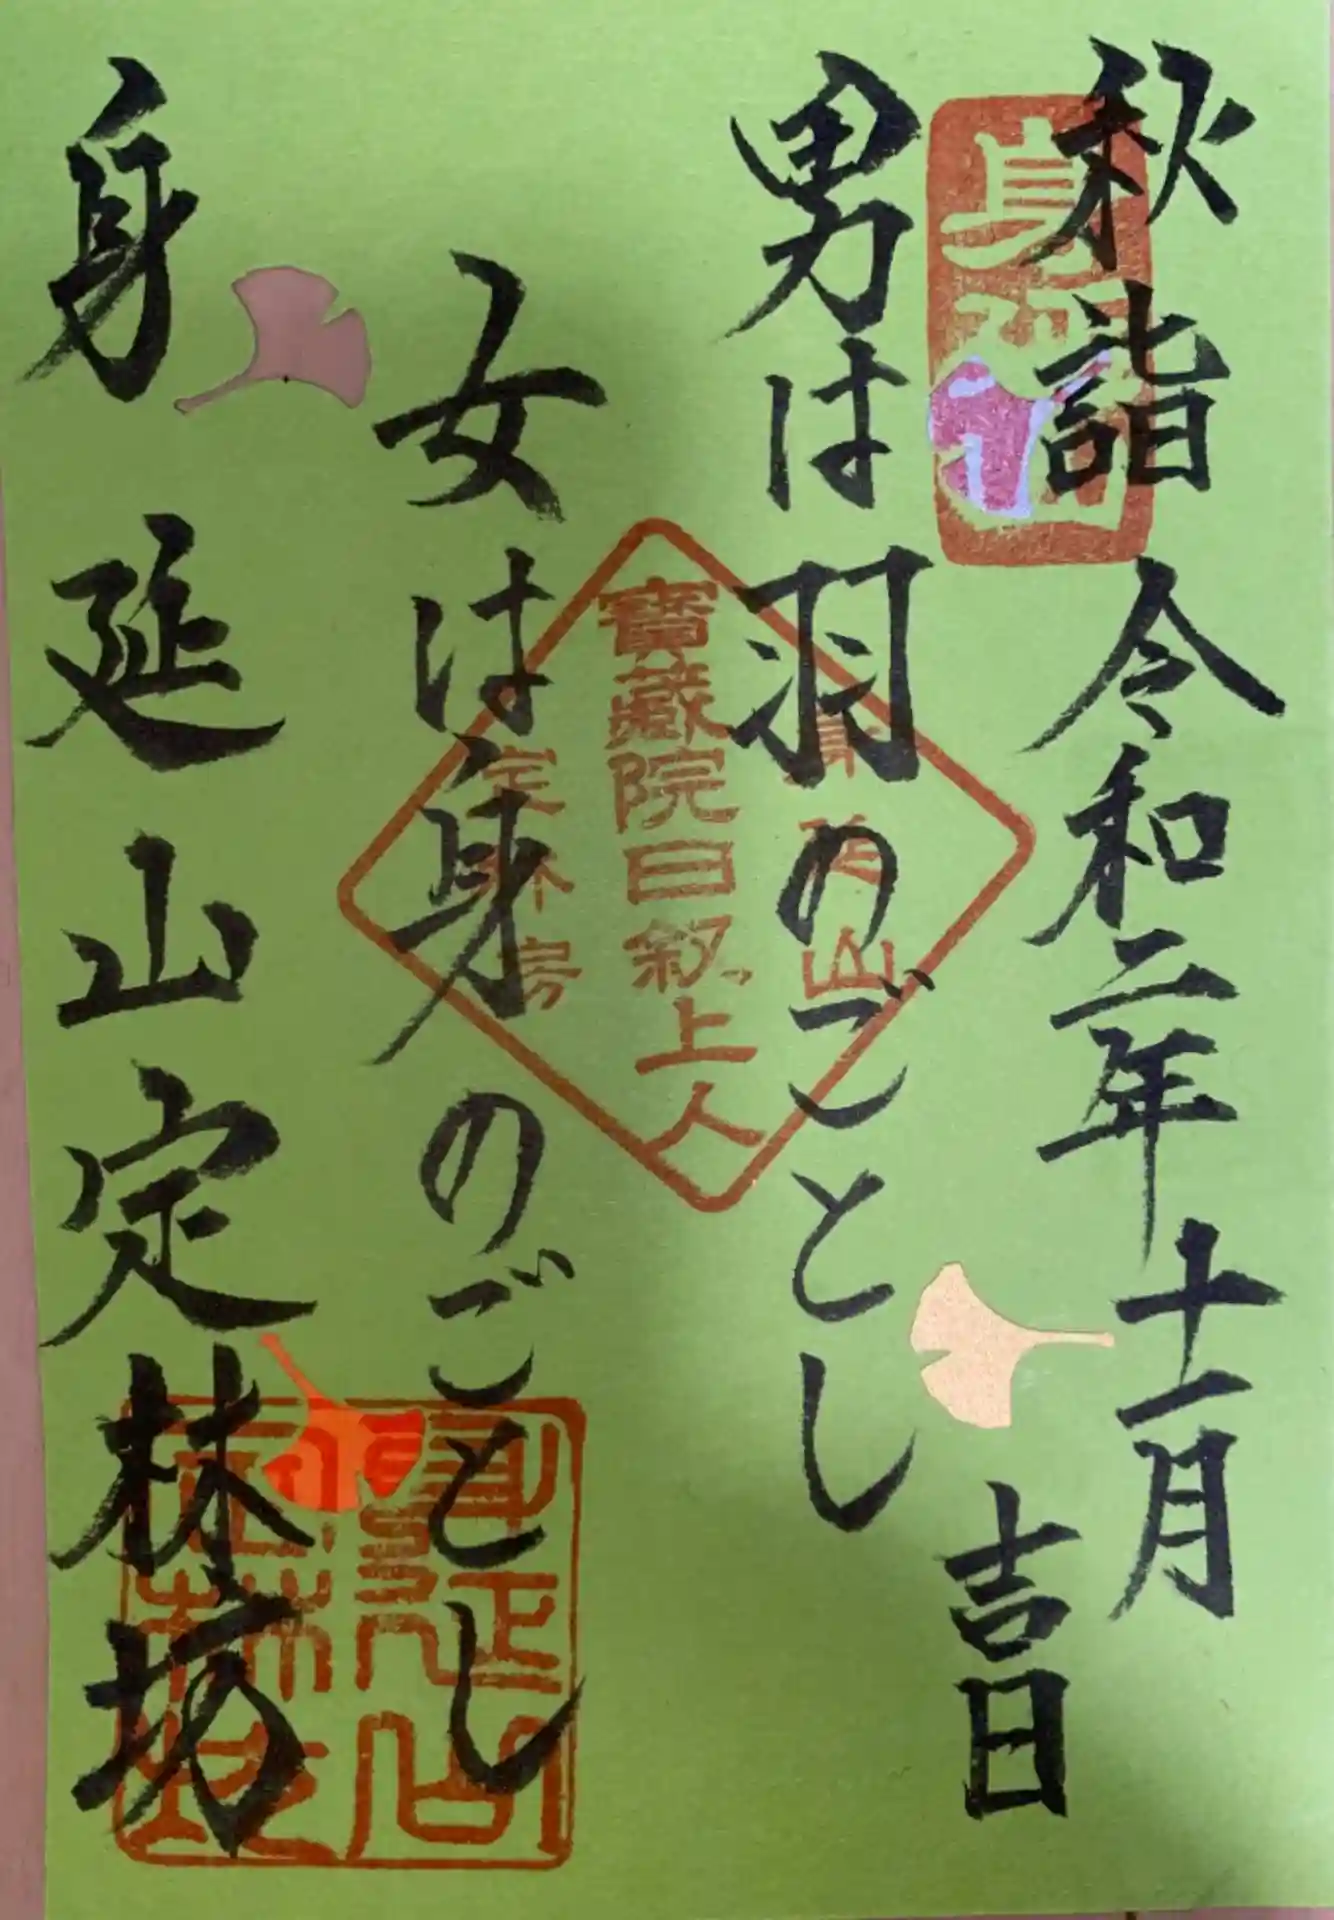 秋詣 令和二年十一月
吉日
男は羽のごとし
女は身のごとし
身延山定林坊
身延山
寶藏院日叙上人
定林房
身延山
定林坊